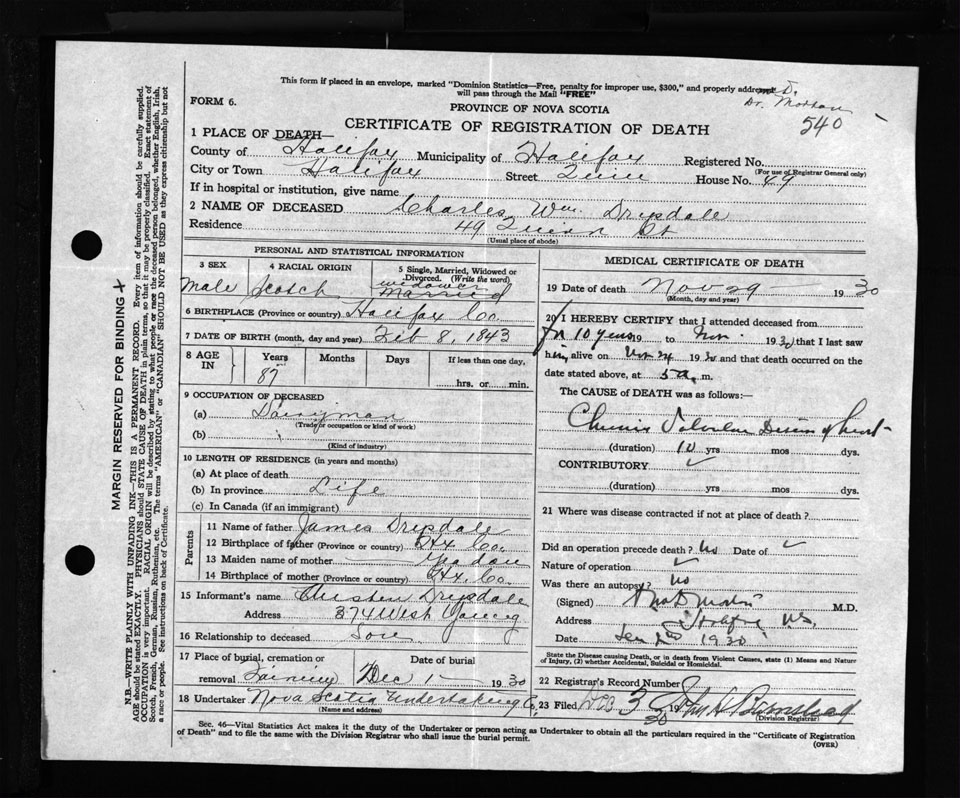 This form if placed in an envelope, marked "Dominion Statistics—Free, penalty for improper use, $300," and properly addressed,
will pass through the Mail "FREE"
FORM 6.
PROVINCE OF NOVA SCOTIA
540
CERTIFICATE OF REGISTRATION OF DEATH
1 PLACE OF DEATH—
County of Halifax Municipality of Halifax Registered No.
(For use of Registrar General only)
City or Town Halifax Street House No. 49
If in hospital or institution, give name
2 NAME OF DECEASED Charles Wm. Drysdale
Residence 49 St
(Usual place of abode)
PERSONAL AND STATISTICAL INFORMATION
3 SEX
Male
4 RACIAL ORIGIN
Scotch
5 Single, Married, Widowed or
Divorced. (Write the word)
widower
Married
6 BIRTHPLACE (Province or country) Halifax Co.
7 DATE OF BIRTH (month, day and year) Feb 8, 1843
8 AGE
IN
Years
87
Months
Days
If less than one day,
hrs. or min.
9 OCCUPATION OF DECEASED
(a) Dairyman
(Trade or occupation or kind of work)
(b)
(Kind of industry)
10 LENGTH OF RESIDENCE (in years and months)
(a) At place of death
(b) In province Life
(c) In Canada (if an immigrant)
Parents
11 Name of father James Drysdale
12 Birthplace of father (Province or country) Hx. Co.
13 Maiden name of mother
14 Birthplace of mother (Province or country) Hx. Co.
15 Informant's name Drysdale
Address 374 West Young
16 Relationship to deceased Son
17 Place of burial, cremation or Date of burial
removal Dec 1 1930
18 Undertaker Nova Scotia Undertaking Co.
(Name and address)
MEDICAL CERTIFICATE OF DEATH
19 Date of death Nov 29 1930
(Month, day and year)
20 I HEREBY CERTIFY that I attended deceased from
for 10 years 19 to Nov 1930 that I last saw
him alive on Nov 1930 and that death occurred on the
date stated above, at 5 a. m.
The CAUSE of DEATH was as follows:—
Chronic Valvular Disease of heart
(duration) 10 yrs mos dys.
CONTRIBUTORY
(duration) yrs mos dys.
21 Where was disease contracted if not at place of death?
Did an operation precede death? No Date of
Nature of operation
Was there an autopsy? No
(Signed) M.D.
Address Halifax N.S.
Date 1930
State the Disease causing Death, or in death from Violent Causes, state (1) Means and Nature
of Injury, (2) whether Accidental, Suicidal or Homicidal.
22 Registrar's Record Number
23 Filed Dec 3 30
(Division Registrar)
Sec. 46—Vital Statistics Act makes it the duty of the Undertaker or person acting as Undertaker to obtain all the particulars required in the "Certificate of Registration
of Death" and to file the same with the Division Registrar who shall issue the burial permit.
(OVER)
MARGIN RESERVED FOR BINDING
N.B.—WRITE PLAINLY WITH UNFADING INK—THIS IS A PERMANENT RECORD. Every item of information should be carefully supplied.
AGE should be stated EXACTLY. PHYSICIANS should STATE CAUSE OF DEATH in plain terms, so that it may be properly classified. Exact statement of
OCCUPATION is very important. RACIAL ORIGIN will be described by stating to what people or race the deceased person belonged, whether English, Irish,
Scotch, French, German, Russian, Ruthenian, etc. The terms "AMERICAN" or "CANADIAN" SHOULD NOT BE USED as they express citizenship but not
a race or people. See instructions on back of Certificate.